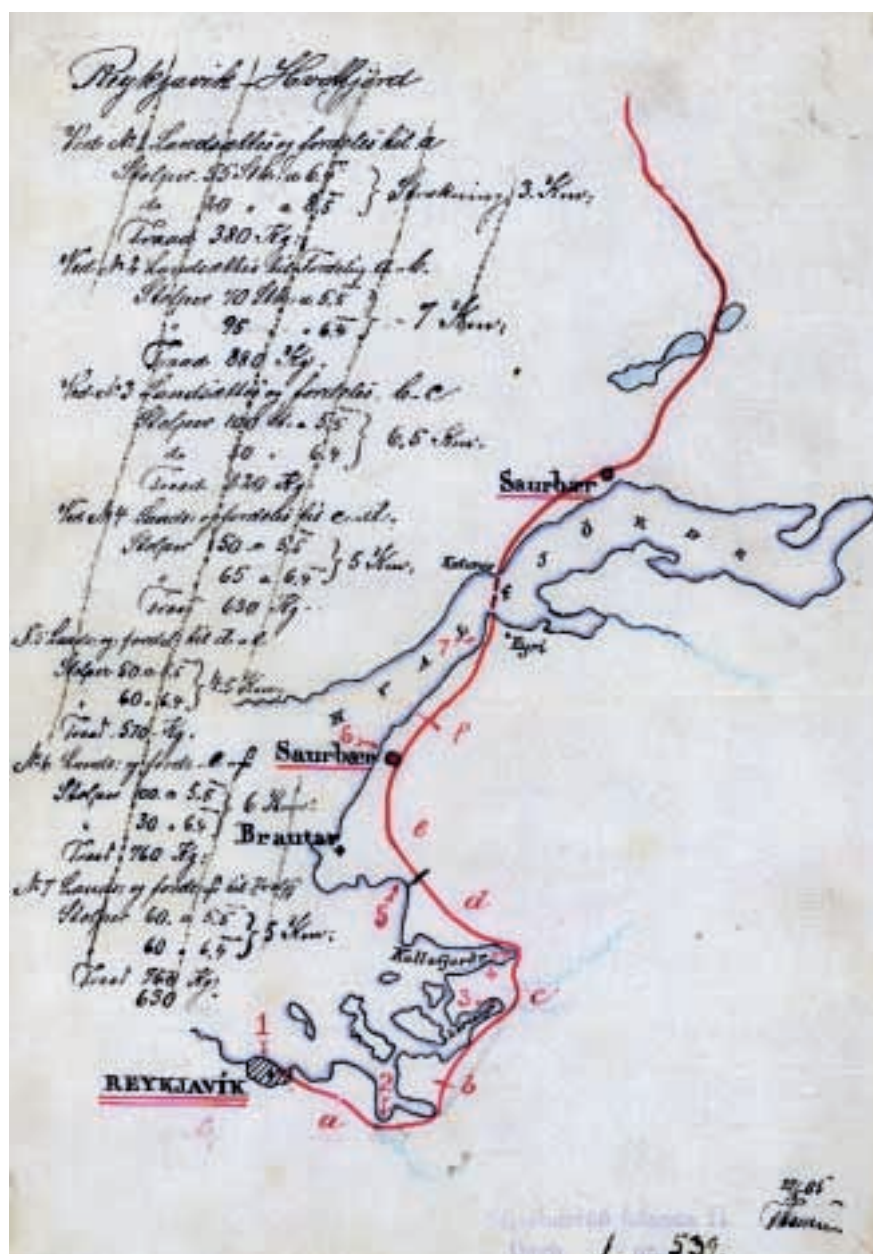 Reykjavik - Hvalfjörd
Ved No 1 Landsættes og fordeles til a
Stolper 55 Stk. a 6,4
do 40 " a 8,5 } Strækning 3. Km.
Traad 380 Kg.
Ved No 2 Landsættes til Fordeling a-b.
Stolper 70 Stk. a 5,5
" 95 " 6,4 } - 7 Km.
Traad 880 Kg.
Ved No 3 Landsættes og fordeles b-c
Stolper 100 St. a 5,5
do 40 " 6,4 } 6,5 Km.
Traad 820 Kg.
Ved No 4 Lands: og fordeles til c-d.
Stolper 50 a 5,5
" 65 a 6,4 } 5 Km.
Traad 630 Kg.
No 5 Lands: og fordel: til d-e
Stolper 50 a 5,5
" 60 " 6,4 } 4,5 Km.
Traad 570 Kg.
No 6 Lands: og fords. e-f
Stolper 100 a 5,5
" 30 " 6,4 } 6 Km.
Traad 760 Kg.
No 7 Lands: og fords. f til
Stolper 60 a 5,5
60 " 6,4 } 5 Km.
Traad 760 Kg.
630
Saurbær
Eyri
7
f
6
Saurbær
e
Brautar
5
d
Kollafjord
4
3
c
1
2
b
REYKJAVÍK
a
1 530